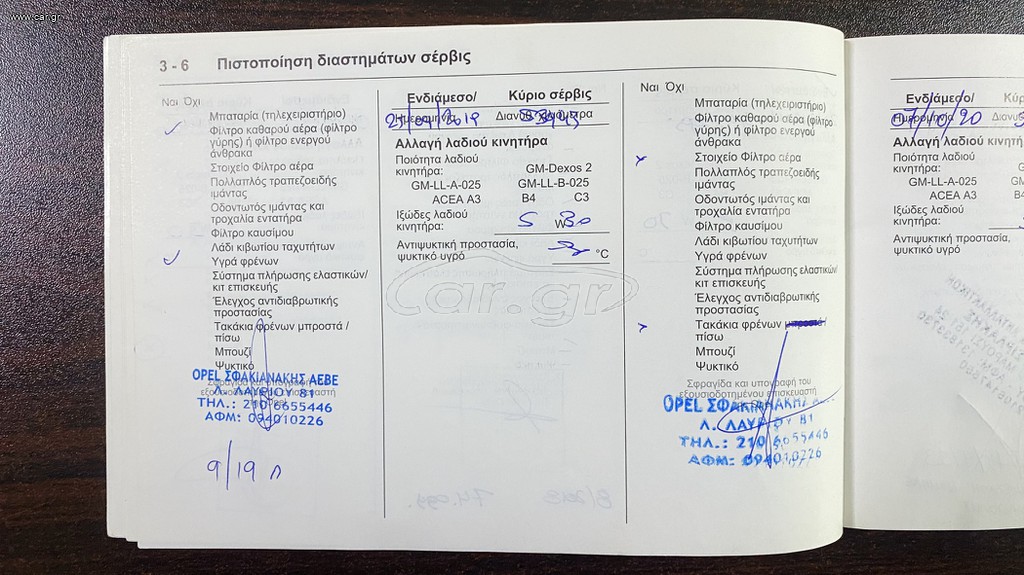 www.car.gr
3 - 6 Πιστοποίηση διαστημάτων σέρβις
Ναι Όχι
Μπαταρία (τηλεχειριστήριο)
Φίλτρο καθαρού αέρα (φίλτρο
γύρης) ή φίλτρο ενεργού
άνθρακα
Στοιχείο Φίλτρο αέρα
Πολλαπλός τραπεζοειδής
ιμάντας
Οδοντωτός ιμάντας και
τροχαλία εντατήρα
Φίλτρο καυσίμου
Λάδι κιβωτίου ταχυτήτων
Υγρά φρένων
Σύστημα πλήρωσης ελαστικών/
κιτ επισκευής
Έλεγχος αντιδιαβρωτικής
προστασίας
Τακάκια φρένων μπροστά /
πίσω
Μπουζί
Ψυκτικό
Σφραγίδα και υπογραφή του
εξουσιοδοτημένου επισκευαστή
OPEL ΣΦΑΚΙΑΝΑΚΗΣ ΑΕΒΕ
Λ. ΛΑΥΡΙΟΥ 81
ΤΗΛ.: 210 6655446
ΑΦΜ: 094010226
9/19
Ενδιάμεσο/ Κύριο σέρβις
Ημερομηνία
Αλλαγή λαδιού κινητήρα
Ποιότητα λαδιού
κινητήρα: GM-Dexos 2
GM-LL-A-025 GM-LL-B-025
ACEA A3 B4 C3
Ιξώδες λαδιού
κινητήρα: 5 W 30
Αντιψυκτική προστασία,
ψυκτικό υγρό °C
car.gr
Ναι Όχι
Μπαταρία (τηλεχειριστήριο)
Φίλτρο καθαρού αέρα (φίλτρο
γύρης) ή φίλτρο ενεργού
άνθρακα
Στοιχείο Φίλτρο αέρα
Πολλαπλός τραπεζοειδής
ιμάντας
Οδοντωτός ιμάντας και
τροχαλία εντατήρα
Φίλτρο καυσίμου
Λάδι κιβωτίου ταχυτήτων
Υγρά φρένων
Σύστημα πλήρωσης ελαστικών/
κιτ επισκευής
Έλεγχος αντιδιαβρωτικής
προστασίας
Τακάκια φρένων μπροστά /
πίσω
Μπουζί
Ψυκτικό
Σφραγίδα και υπογραφή του
εξουσιοδοτημένου επισκευαστή
OPEL ΣΦΑΚΙΑΝΑΚΗΣ
Λ. ΛΑΥΡΙΟΥ 81
ΤΗΛ.: 210 6655446
ΑΦΜ: 094010226
Ενδιάμεσο/
07/10/20
Αλλαγή λαδιού
Ποιότητα λαδιού
κινητήρα:
GM-LL-A-025
ACEA A3
Ιξώδες λαδιού
κινητήρα:
Αντιψυκτική προστασία,
ψυκτικό υγρό